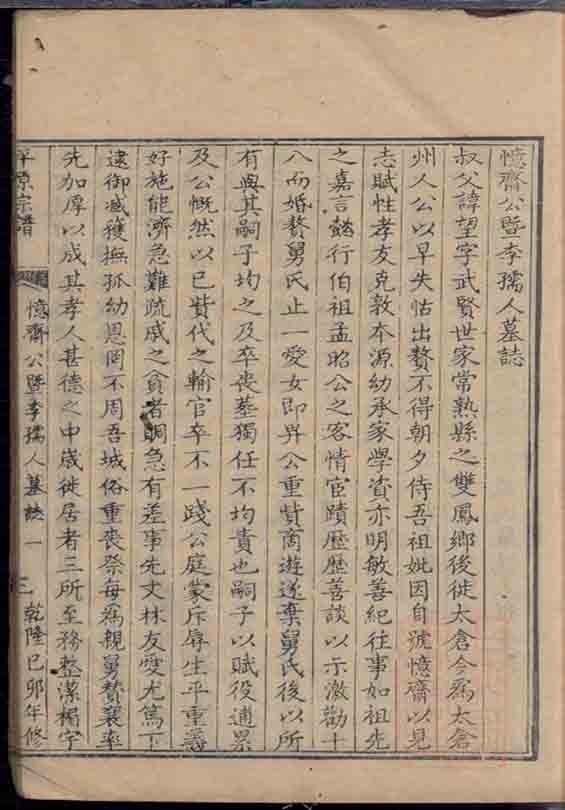 憶齋公暨李孺人墓誌
叔父諱望字武賢世家常熟縣之雙鳳鄉後徙太倉今為太倉
州人公以早失怙出贅不得朝夕侍吾祖妣因自號憶齋以見
志賦性孝友克敦本源幼承家學資亦明敏善紀往事如祖先
之嘉言懿行伯祖孟昭公之客情宦蹟歷歷善談以示激勸十
八而婚贅舅氏止一愛女即畀公重貲商遊遂棄舅氏後以所
有與其嗣子均之及卒喪葬獨任不均責也嗣子以賦役逋累
及公慨然以已貲代之輸官卒不一踐公庭蒙斥辱生平重義
好施能濟急難疏戚之貧者賙急有差事先丈林友愛尤篤下
逮御臧獲撫孤幼恩罔不周吾城俗重喪祭每為親舅贊襄率
先加厚以成其孝人甚德之中歲徙居者三所至務整潔楊字
平原宗譜
憶齋公暨李孺人墓誌一
三
乾隆己卯年修